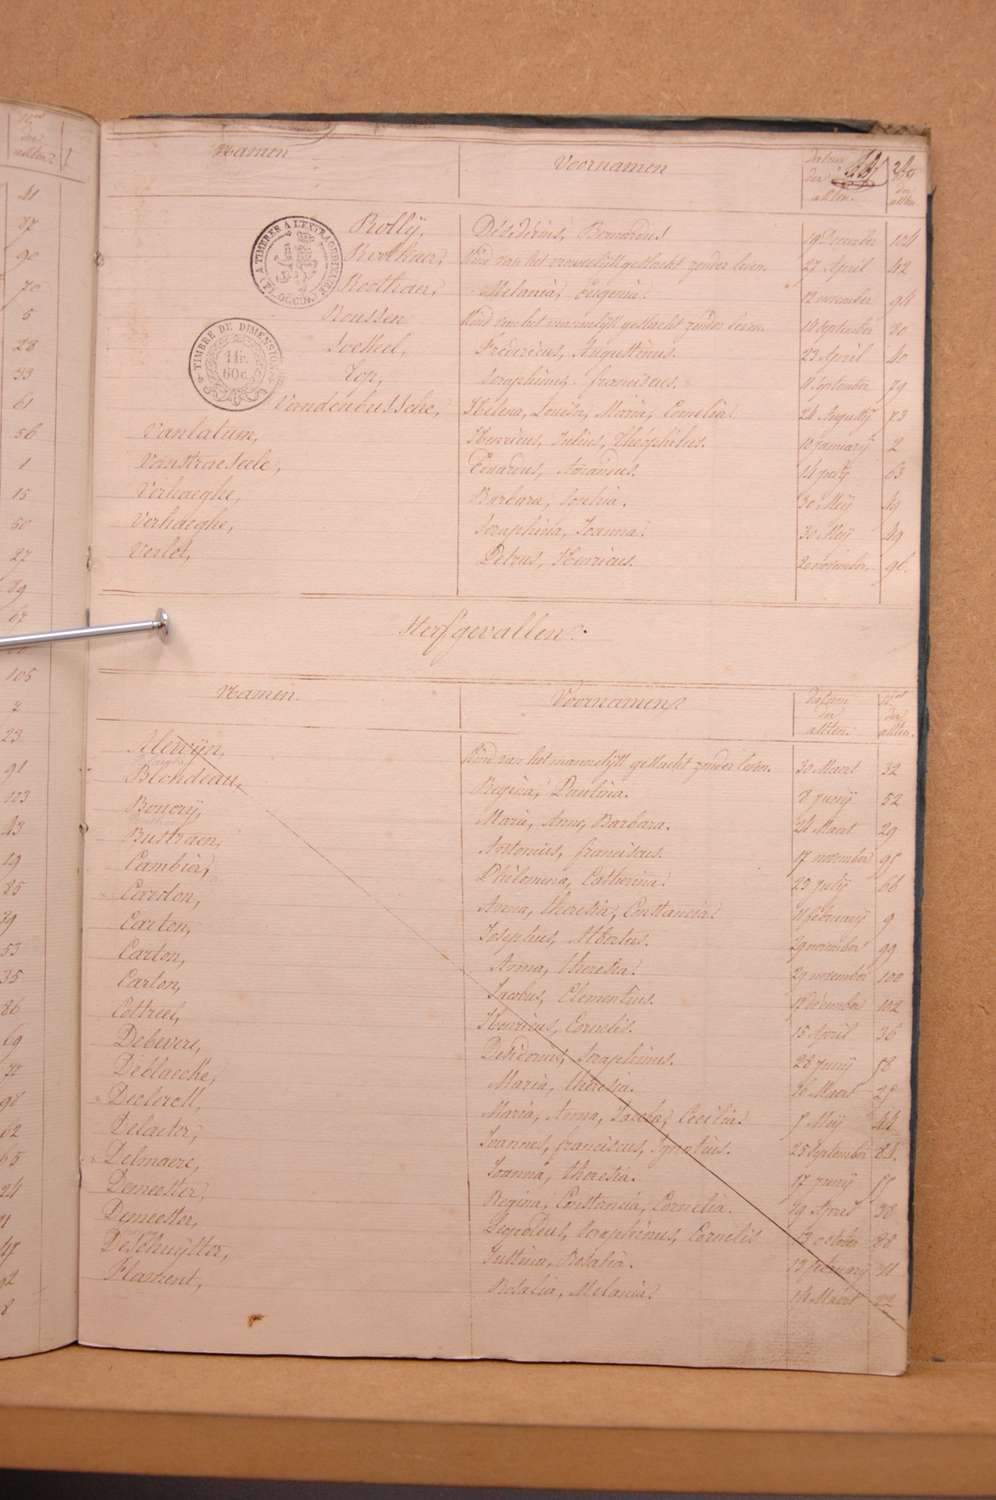 Namen Voornamen Datum der akten. Nos der akten
Rolly, Désidérius, Bernardus 19 December 104
Kind van het vrouwelijk geslacht zonder leven. 27 April 42
Roothaer, Melania, Eugenia. 12 november 94
Roussen Kind van het mannelijk geslacht zonder leven. 10 September 80
Soekel, Fredericus, Augustinus. 23 April 40
Ton, Seraphinus, franciscus. 11 September 79
Vandenbussche, Helena, Louisa, Maria, Cornelia. 24 Augusty 73
Vanlatum, Henricus, Julius, Théophilus. 12 January 2
Vanstraeseele, Eduardus, Amandus. 14 july 63
Verhaeghe, Barbara, Sophia. 30 Mey 49
Verhaeghe, Seraphina, Joanna. 30 Mey 49
Verlet, Petrus, Henricus. 20 november 96
TIMBRE DE DIMENSION
1 fr.
60 c.
Sterfgevallen.
Namen. Voornamen. Datum der akten. Nos der akten.
Alewyn, Kind van het mannelijk geslacht zonder leven. 30 Maart 32
Blondeau, Regina, Paulina. 8 juny 52
Boucry, Marie, Anne, Barbara. 24 Maart 29
Bustraen, Antonius, franciscus. 17 november 95
Cambier, Philomena, Catherina. 23 july 66
Cardon, Anna, theresia, Constancia. 11 february 9
Carton, Josephus, Albertus. 29 november 99
Carton, Anna, theresia. 29 november 100
Carton, Jacobus, Clementius. 12 december 102
Cottreel, Henricus, Cornelis. 15 April 36
Debevere, Desiderius, Seraphinus. 28 juny 58
Deblaeche, Maria, theresia. 16 Maart 25
Declerck, Maria, Anna, Jacoba, Cecilia. 7 Mey 44
Delaeter, Joannes, franciscus, Ignatius. 25 September 84
Delmaere, Joanna, theresia. 17 juny 55
Demeester, Regina, Constancia, Cornelia. 19 April 38
Demeester, Leopoldus, Seraphinus, Cornelis 13 october 88
Deschuytter, Justina, Rosalia. 12 february 11
Flament, Rosalia, Melania. 14 Maart 22
41
87
90
70
5
28
33
61
56
1
15
50
27
89
67
105
7
23
91
103
43
19
85
39
53
35
86
69
98
62
65
24
47
92
8